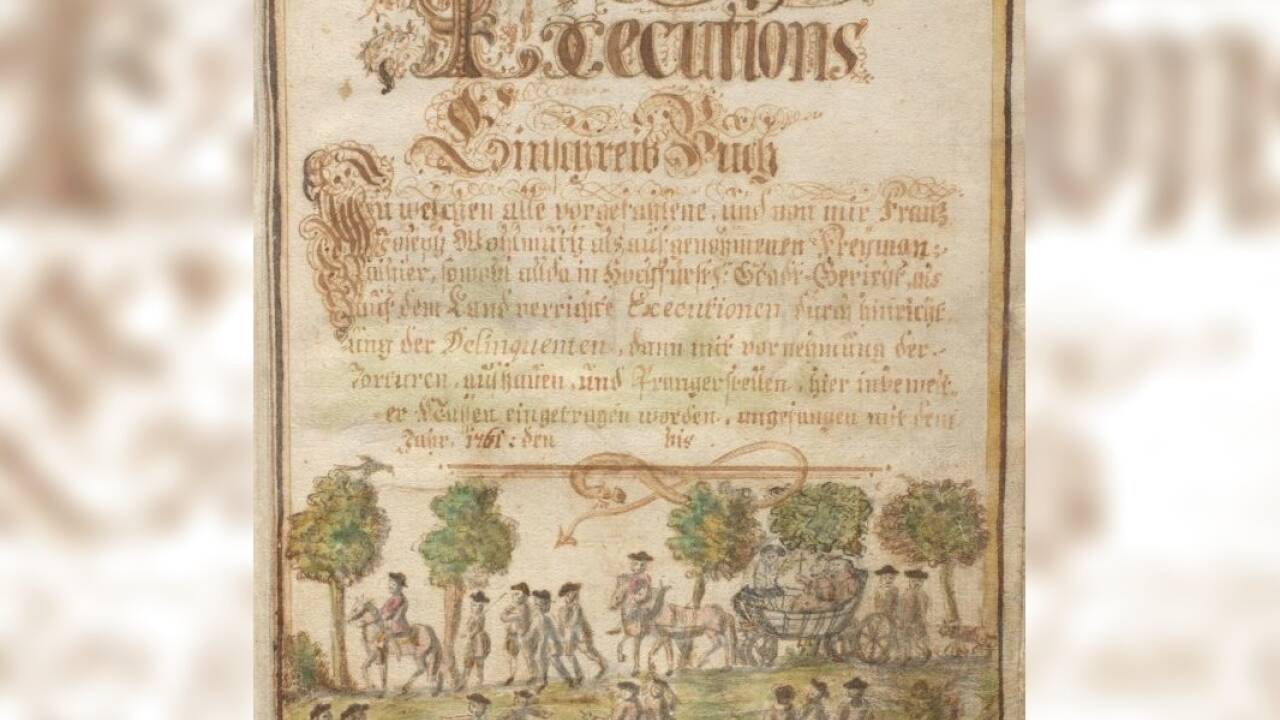 Executions
Einschreib Buch
In welchen alle vorgefahlene, und von mir Frantz
Joseph Wohlmuth als aufgenohmenen Freyman-
allhier, sowohl allda in Hochfürstl: Stadt-Gericht, als
auf dem Land verrichte Executionen, durch hinricht-
ung der Delinquenten, dann mit vornehmung der-
Torturen, aushauen, und Prangerstellen, hier
er Massen eingetragen worden, angefangen mit dem
Jahr. 1761: den bis